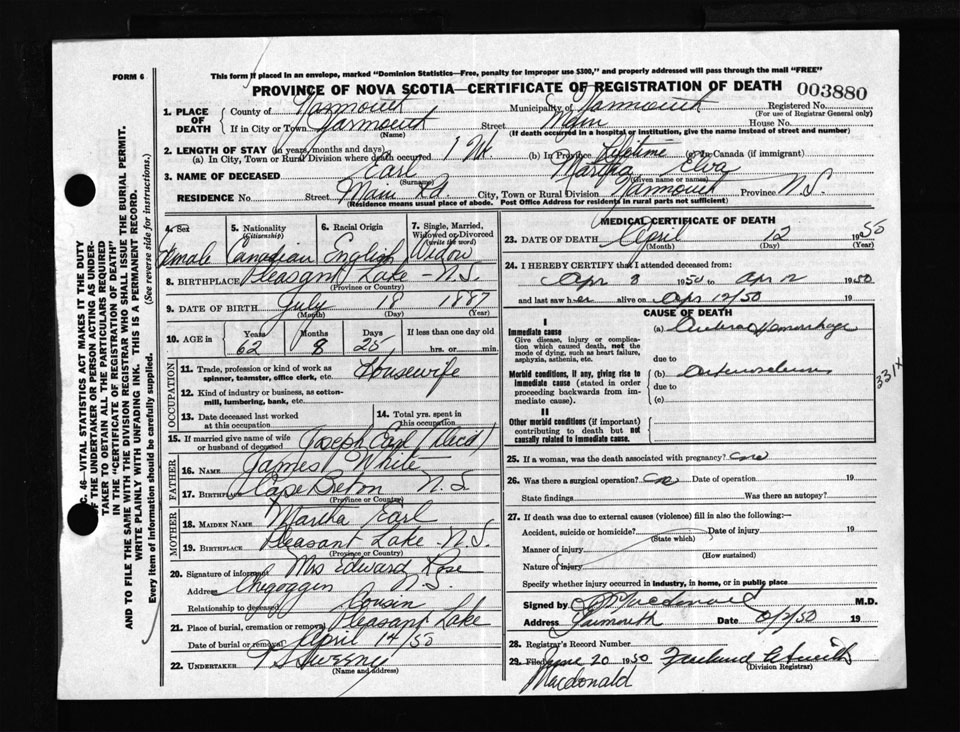 FORM 6
This form if placed in an envelope, marked "Dominion Statistics—Free, penalty for improper use $300," and properly addressed will pass through the mail "FREE"
PROVINCE OF NOVA SCOTIA—CERTIFICATE OF REGISTRATION OF DEATH
003880
1. PLACE OF DEATH County of Yarmouth Municipality of Yarmouth Registered No.
(For use of Registrar General only)
If in City or Town Yarmouth Street Main House No.
(Name) (If death occurred in a hospital or institution, give the name instead of street and number)
2. LENGTH OF STAY (in years, months and days)
(a) In City, Town or Rural Division where death occurred 1 Wk. (b) In Province Lifetime (c) In Canada (if immigrant)
3. NAME OF DECEASED Earl Martha Elva
(Surname) (Given name or names)
RESIDENCE No. Street Main Rd. City, Town or Rural Division Yarmouth Province N.S.
(Residence means usual place of abode. Post Office Address for residents in rural parts not sufficient)
4. Sex 5. Nationality (Citizenship) 6. Racial Origin 7. Single, Married, Widowed or Divorced (write the word)
Female Canadian English Widow
8. BIRTHPLACE Pleasant Lake - N.S.
(Province or Country)
9. DATE OF BIRTH July 18 1887
(Month) (Day) (Year)
10. AGE in Years Months Days If less than one day old
62 8 25 hrs. or min.
OCCUPATION
11. Trade, profession or kind of work as spinner, teamster, office clerk, etc. Housewife
12. Kind of industry or business, as cotton-mill, lumbering, bank, etc.
13. Date deceased last worked at this occupation 14. Total yrs. spent in this occupation
15. If married give name of wife or husband of deceased Joseph Earl (Dec'd)
FATHER
16. NAME James White
17. BIRTHPLACE Cape Breton N.S.
(Province or Country)
MOTHER
18. MAIDEN NAME Martha Earl
19. BIRTHPLACE Pleasant Lake - N.S.
(Province or Country)
20. Signature of informant Mrs Edward Rose
Address Chegoggin N.S.
Relationship to deceased Cousin
21. Place of burial, cremation or removal Pleasant Lake
Date of burial or removal April 14/50
22. UNDERTAKER Sweeny
(Name and address)
MEDICAL CERTIFICATE OF DEATH
23. DATE OF DEATH April 12 1950
(Month) (Day) (Year)
24. I HEREBY CERTIFY that I attended deceased from:
Apr 3 1950 to Apr 12 1950
and last saw her alive on Apr 12/50 19
CAUSE OF DEATH
I
Immediate cause
Give disease, injury or complication which caused death, not the mode of dying, such as heart failure, asphyxia, asthenia, etc.
(a) Cerebral Hemorrhage
due to
Morbid conditions, if any, giving rise to immediate cause (stated in order proceeding backwards from immediate cause).
(b) Arteriosclerosis
due to
(c)
331X
II
Other morbid conditions (if important) contributing to death but not causally related to immediate cause.
25. If a woman, was the death associated with pregnancy? no
26. Was there a surgical operation? no Date of operation 19
State findings Was there an autopsy?
27. If death was due to external causes (violence) fill in also the following:—
Accident, suicide or homicide? Date of injury 19
(State which)
Manner of injury
(How sustained)
Nature of injury
Specify whether injury occurred in industry, in home, or in public place
Signed by Macdonald M.D.
Address Yarmouth Date 19
28. Registrar's Record Number
29. Filed June 20 1950
(Division Registrar)
Macdonald
C. 46—VITAL STATISTICS ACT MAKES IT THE DUTY
OF THE UNDERTAKER OR PERSON ACTING AS UNDER-
TAKER TO OBTAIN ALL THE PARTICULARS REQUIRED
IN THE "CERTIFICATE OF REGISTRATION OF DEATH"
AND TO FILE THE SAME WITH THE DIVISION REGISTRAR WHO SHALL ISSUE THE BURIAL PERMIT.
WRITE PLAINLY WITH UNFADING INK. THIS IS A PERMANENT RECORD.
Every item of information should be carefully supplied. (See reverse side for instructions.)